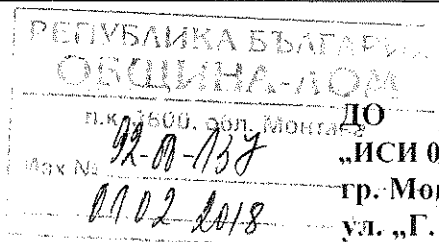 РЕПУБЛИКА БЪЛГАРИЯ
ОБЩИНА-ЛОМ
п.к. 3600, обл. Монтана
Изх №
01.02.2018
ДО
„ИСИ 0
гр. Мон
ул. „Г.